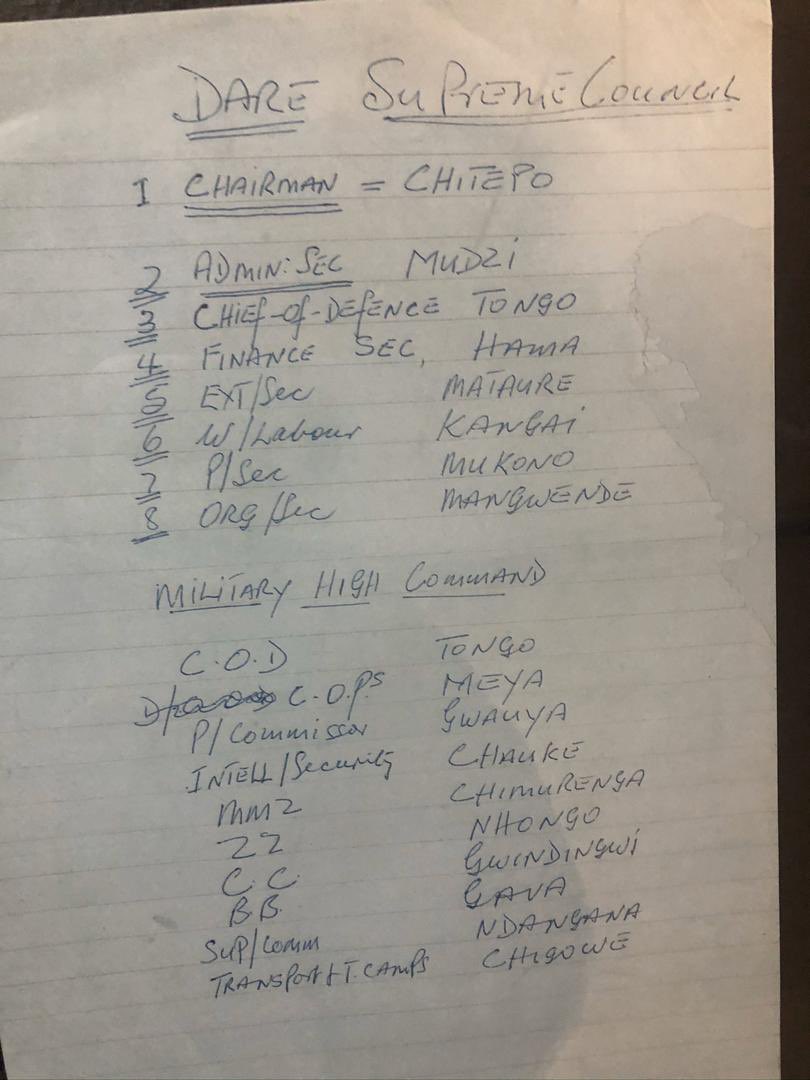 DARE SUPREME COUNCIL
1 CHAIRMAN = CHITEPO
2 ADMIN: SEC MUDZI
3 CHIEF-of-DEFENCE TONGO
4 FINANCE SEC, HAMA
5 EXT/Sec MATAURE
6 W/Labour KANGAI
7 P/Sec MUKONO
8 ORG/Sec MANGWENDE
MILITARY HIGH COMMAND
C.O.D TONGO
C.O.Ps MEYA
P/Commissar GWAUYA
INTELL/Security CHAUKE
MMZ CHIMURENGA
ZZ NHONGO
C.C. GWINDINGWI
B.B. GAVA
SUP/Comm NDANGANA
TRANSPORT & T. CAMPS CHIGOWE